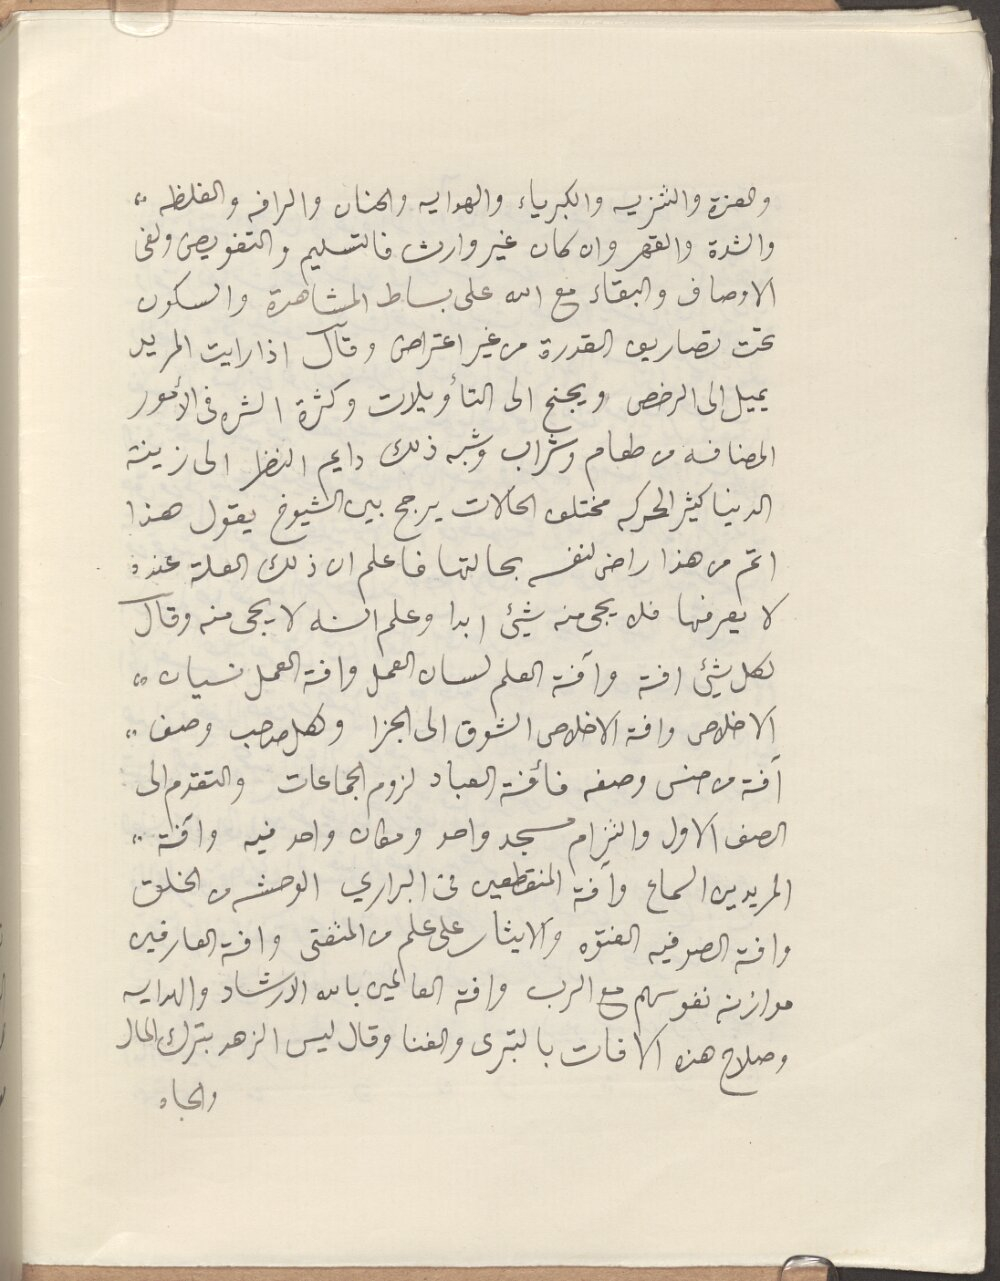 والعزة والتنزيه والكبرياء والهدايه والحنان والرافه والغلظه ؞
والشدة والقهر وان كان غير وارث فالتسليم والتفويض ونفى
الاوصاف والبقاء مع الله على بساط المشاهدة والسكون
تحت تصاريف القدرة من غير اعتراض وقال اذا رايت المريد
يميل الى الرخص ويجنح الى التأويلات وكثرة الشره فى الأمور
المضافه من طعام وشراب وشبه ذلك دايم النظر الى زينة
الدنيا كثير الحركه مختلف الحالات يرجح بين الشيوخ يقول هذا
اتم من هذا راض لنفسه بحالتها فاعلم ان ذلك العلة عنده
لا يعرفها فلا يجى منه شيئ ابدا وعلم انه لا يجى منه وقال
لكل شيئ افة وآفة العلم لسان العمل وافة العمل نسيان ؞
الاخلاص وافة الاخلاص الشوق الى الجزا ولكل صاحب وصف ؞
آفة من جنس وصفه فأفة العباد لزوم الجماعات والتقدم الى
الصف الاول والتزام مسجد واحد ومكان واحد فيه وآفة ؞
المريدين السماع وآفة المنقطعين فى البراري الوحشه من الخلق
وافة الصوفيه الفتوه والايثار على علم من المثفتى وافة العارفين
موازنة نفوسهم مع الرب وافة العالمين بالله الارشاد والهدايه
وصلاح هذه الافات بالتبرى والفنا وقال ليس الزهد بترك المال
والجاه